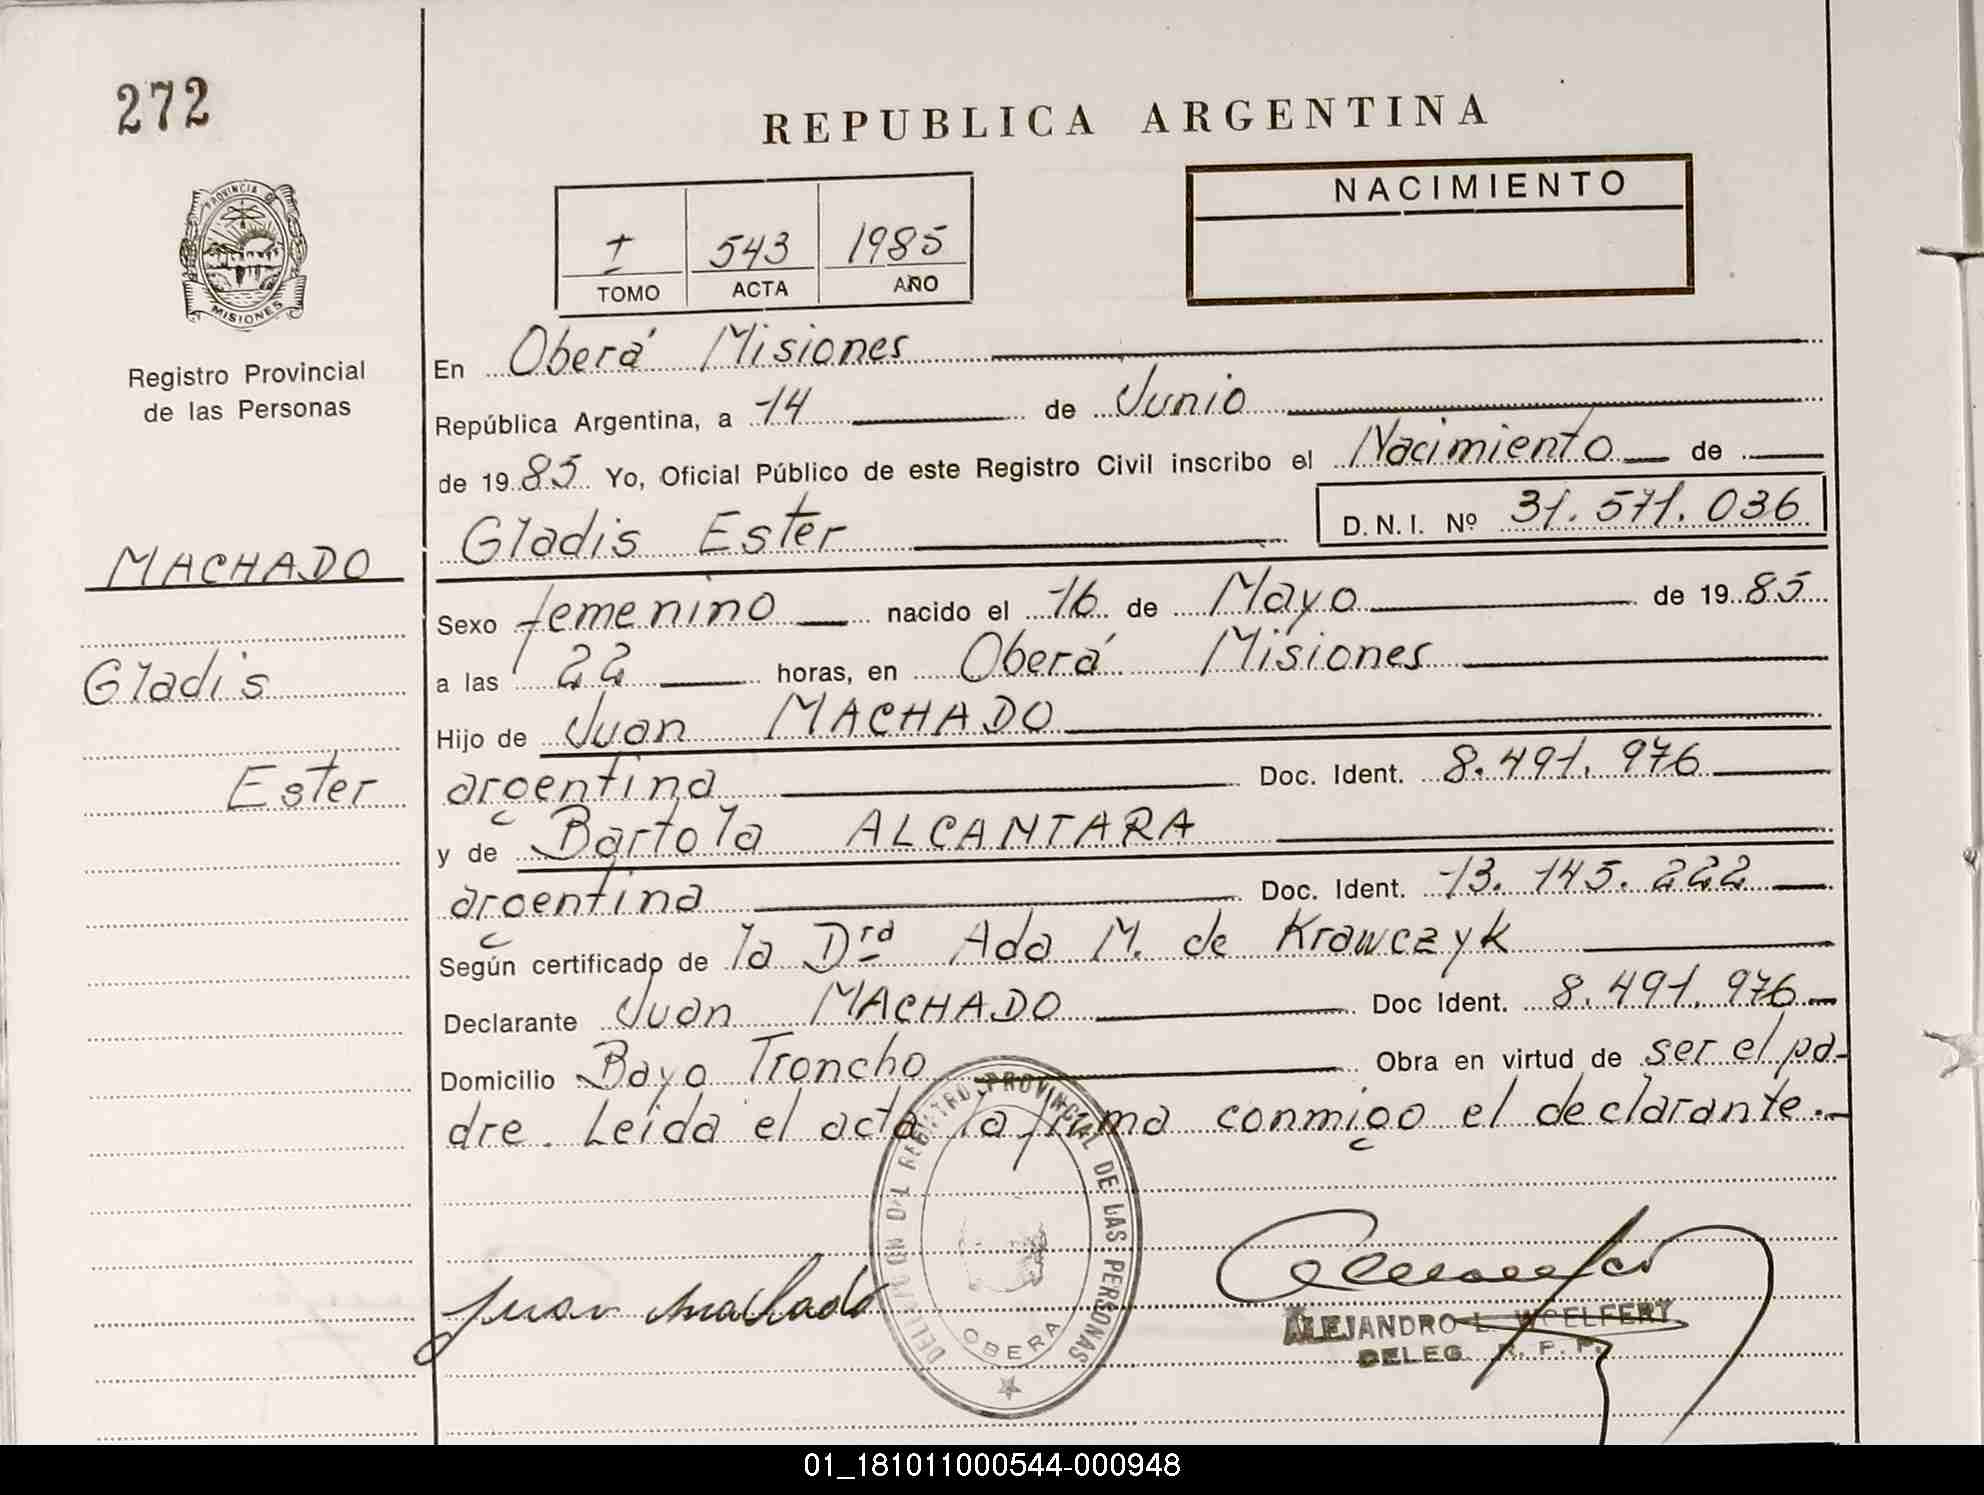 272
REPUBLICA ARGENTINA
NACIMIENTO
I 543 1985
TOMO ACTA AÑO
PROVINCIA DE
MISIONES
Registro Provincial
de las Personas
MACHADO
Gladis
Ester
En Oberá Misiones
República Argentina, a 14 de Junio
de 1985 Yo, Oficial Público de este Registro Civil inscribo el Nacimiento de
Gladis Ester D.N.I. Nº 31.571.036
Sexo femenino nacido el 16 de Mayo de 1985
a las 22 horas, en Oberá Misiones
Hijo de Juan MACHADO
argentina Doc. Ident. 8.491.976
y de Bartola ALCANTARA
argentina Doc. Ident. 13.145.222
Según certificado de la Dra Ada M. de Krawczyk
Declarante Juan MACHADO Doc Ident. 8.491.976
Domicilio Bayo Troncho Obra en virtud de ser el pa-
dre. Leida el acta la firma conmigo el declarante.-
DELEGACION DEL REGISTRO PROVINCIAL DE LAS PERSONAS
OBERA
Juan Machado
ALEJANDRO L. WOELFERT
DELEG. R. P. P.
01_181011000544-000948